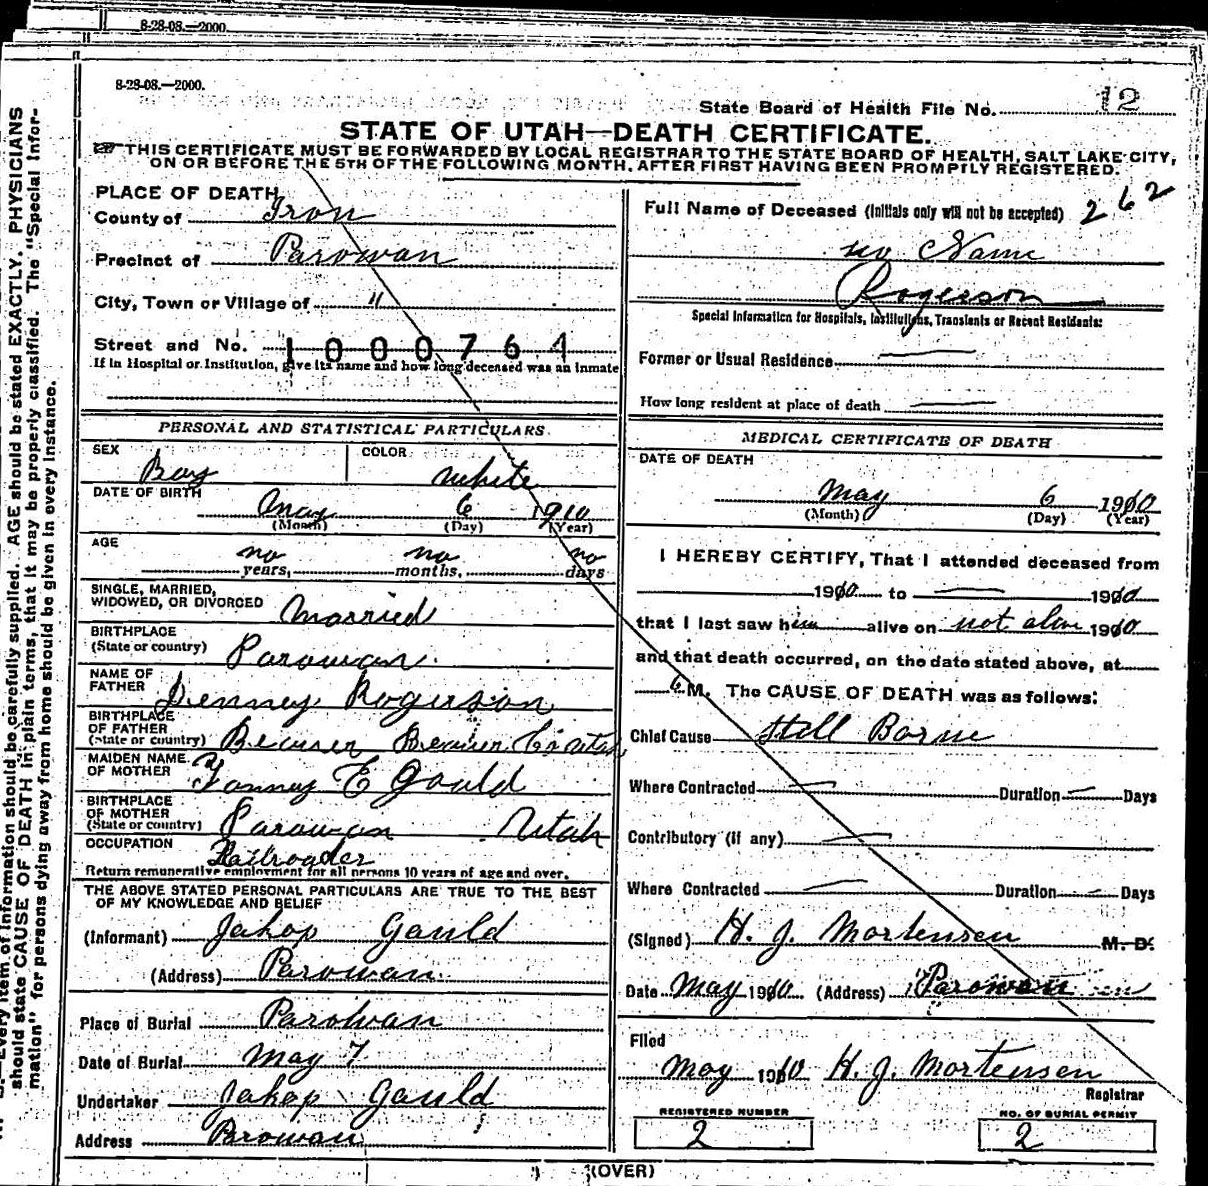 8-28-08.—2000.
8-28-08.—2000.
State Board of Health File No. 12
STATE OF UTAH—DEATH CERTIFICATE.
THIS CERTIFICATE MUST BE FORWARDED BY LOCAL REGISTRAR TO THE STATE BOARD OF HEALTH, SALT LAKE CITY,
ON OR BEFORE THE 5TH OF THE FOLLOWING MONTH, AFTER FIRST HAVING BEEN PROMPTLY REGISTERED.
PLACE OF DEATH
County of Iron
Precinct of Parowan
City, Town or Village of "
Street and No. 1000764
If in Hospital or Institution, give its name and how long deceased was an inmate
PERSONAL AND STATISTICAL PARTICULARS
SEX Boy COLOR White
DATE OF BIRTH May 6 1910
(Month) (Day) (Year)
AGE no years, no months, no days
SINGLE, MARRIED,
WIDOWED, OR DIVORCED Married
BIRTHPLACE
(State or country) Parowan
NAME OF
FATHER Denney Rogerson
BIRTHPLACE
OF FATHER
(State or country) Beaver Beaver Co Utah
MAIDEN NAME
OF MOTHER Fanney E Gould
BIRTHPLACE
OF MOTHER
(State or country) Parowan Utah
OCCUPATION Railroader
Return remunerative employment for all persons 10 years of age and over.
THE ABOVE STATED PERSONAL PARTICULARS ARE TRUE TO THE BEST
OF MY KNOWLEDGE AND BELIEF
(Informant) Jakop Gould
(Address) Parowan
Place of Burial Parowan
Date of Burial May 7
Undertaker Jakop Gould
Address Parowan
Full Name of Deceased (Initials only will not be accepted) 262
no Name
Rogerson
Special Information for Hospitals, Institutions, Transients or Recent Residents:
Former or Usual Residence
How long resident at place of death
MEDICAL CERTIFICATE OF DEATH
DATE OF DEATH
May 6 1910
(Month) (Day) (Year)
I HEREBY CERTIFY, That I attended deceased from
1910 to 1910
that I last saw him alive on not alive 1910
and that death occurred, on the date stated above, at
6 M. The CAUSE OF DEATH was as follows:
Chief Cause Still Borne
Where Contracted Duration Days
Contributory (if any)
Where Contracted Duration Days
(Signed) H. J. Mortensen M. D.
Date May 1910 (Address) Parowan
Filed
May 1910 H. J. Mortensen
Registrar
REGISTERED NUMBER NO. OF BURIAL PERMIT
2 2
(OVER)
Every item of information should be carefully supplied. AGE should be stated EXACTLY. PHYSICIANS
should state CAUSE OF DEATH in plain terms, that it may be properly classified. The "Special Infor-
mation" for persons dying away from home should be given in every instance.